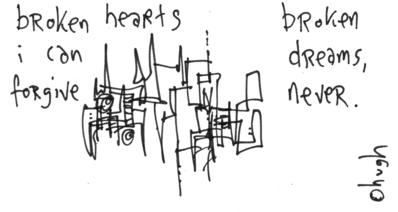 broken hearts
i can
forgive
broken
dreams,
never.
@hugh